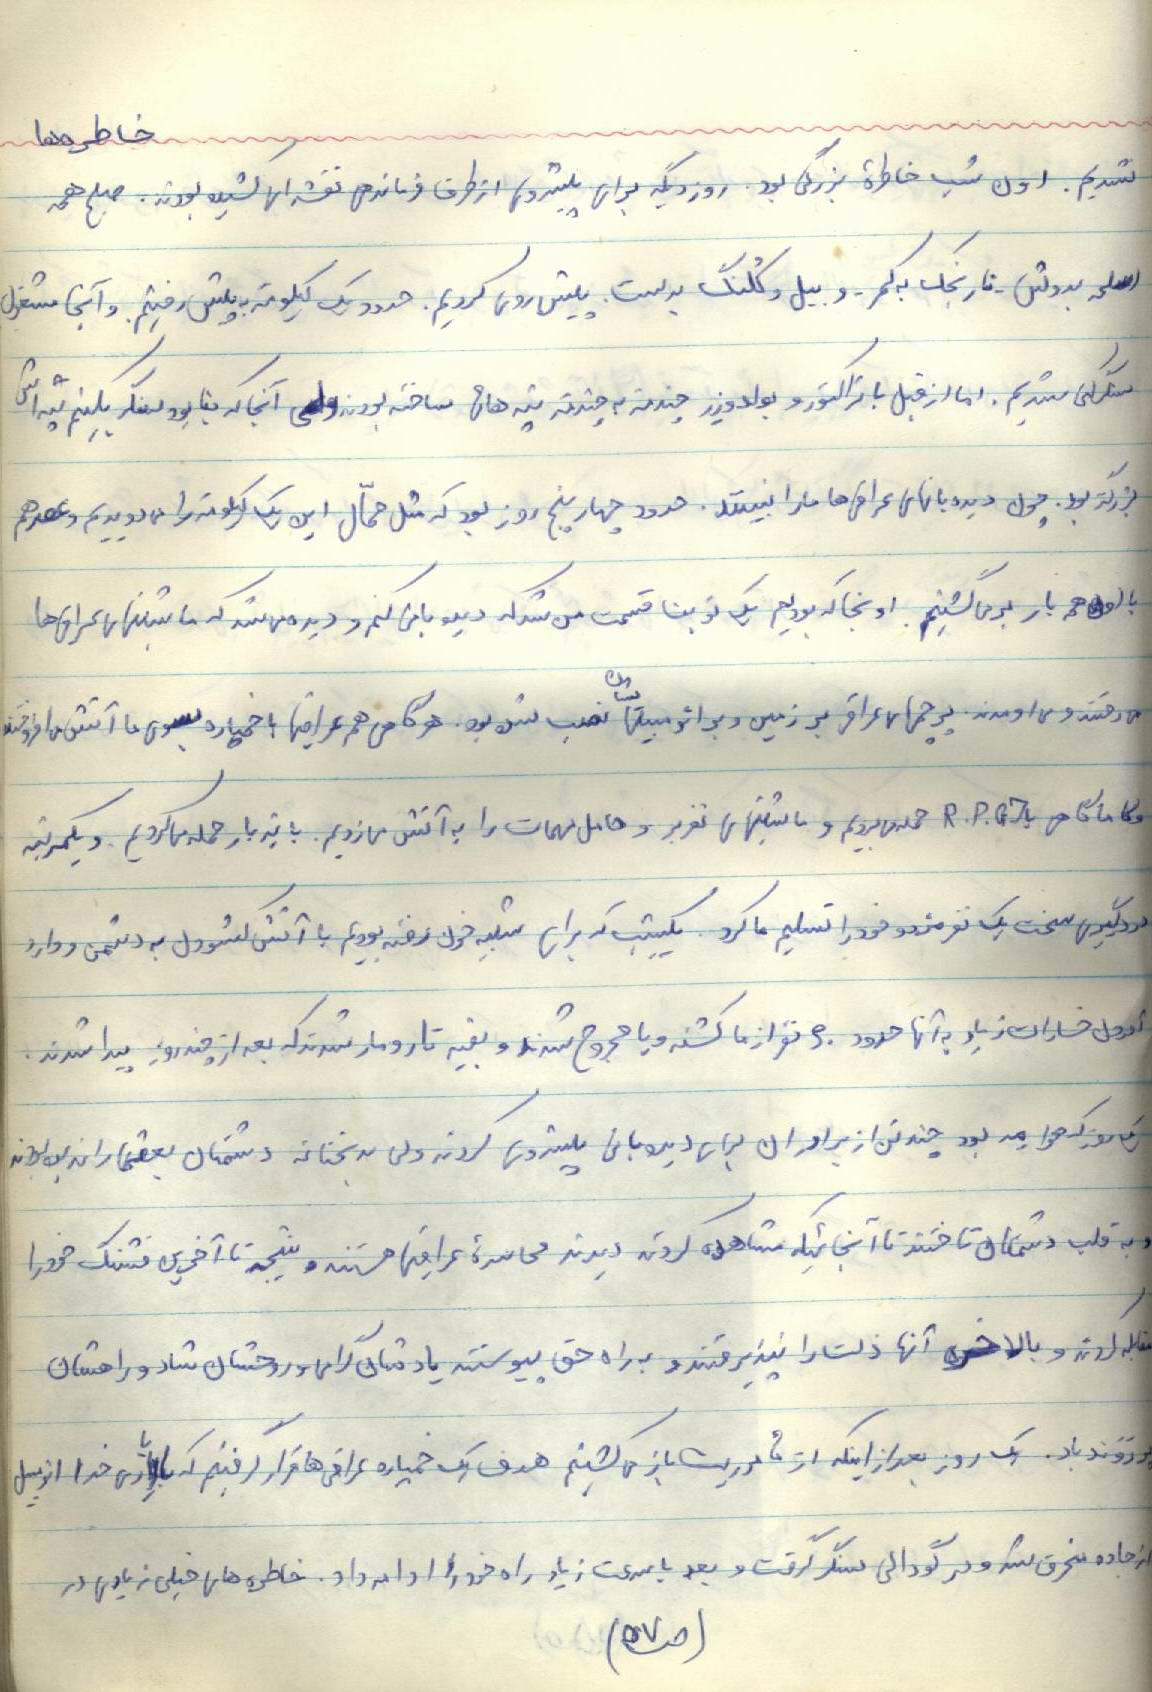 خاطره‌ها
شدیم. اول شب خاطرهٔ بزرگی بود. روز دیگه برای پیشروی از طرف فرماندهی نقشه‌ای کشیده بودند. صبح همه
اسلحه بدوش - نارنجک به کمر - و بیل و کلنگ بدست. پیش روی کردیم. حدود یک کیلومتر به پیش رفتیم. و آنجا مشغول
سنگرکنی شدیم. اما از قبل با تراکتور و بولدوزر چند متر به چند متر تپه‌های ساخته بودند ولی آنجا که بنا بود سنگر بکنیم تپه‌اش
بزرگتر بود. چون دیده‌بانهای عراقی‌ها ما را نبینند. حدود چهار پنج روز بود که مثل حمّال این یک کیلومتر را می‌دویدیم و عصر هم
با اون همه بار برمی‌گشتیم. اونجا که بودیم یک نوبت قسمت من شد که دیده‌بانی کنم و دیده می‌شد که ماشینهای عراقی‌ها
می‌رفتند و می‌اومدند. پرچمهای عراقی بر زمین و بر اتومبیلهاشان نصب شده بود. هر گاهی هم عراقیها با خمپاره بسوی ما آتش می‌افروختند
و ما گاهی با R.P.G7 حمله می‌بردیم و ماشینهای نفربر و حامل مهمات را به آتش می‌زدیم. با تیربار حمله می‌کردیم. و یکمرتبه
در درگیری سخت یک نفر مزدور خود را تسلیم ما کرد. یکشب که برای شبیه‌خون رفته بودیم با آتش گشودن به دشمن و وارد
آوردن خسارات زیاد به آنها حدود ۵۰ نفر از ما کشته و یا مجروح شدند و بقیه تار و مار شدند که بعد از چند روز پیدا شدند.
یک روز که هوا مه بود چند تن از برادران برای دیده‌بانی پیشروی کردند ولی بدبختانه دشمنان بعضیها را ندیده بودند
و به قلب دشمنان تاختند تا آنجائیکه مشاهده کردند دیدند محاصرهٔ عراقیها هستند و نتیجه تا آخرین فشنگ خود را
مقابله کردند و بالاخره آنها ذلت را نپذیرفتند و به راه حق پیوستند یادشان گرامی و روحشان شاد و راهشان
پر رهرو باد. یک روز بعد از اینکه از مأموریت باز می‌گشتیم هدف یک خمپاره عراقی‌ها قرار گرفتیم که با یاری خدا اتومبیل
از جاده منحرف شد و در گودالی سنگر گرفت و بعد با سرعت زیاد راه خود را ادامه داد. خاطره‌های خیلی زیادی در
(ص ۵۷)